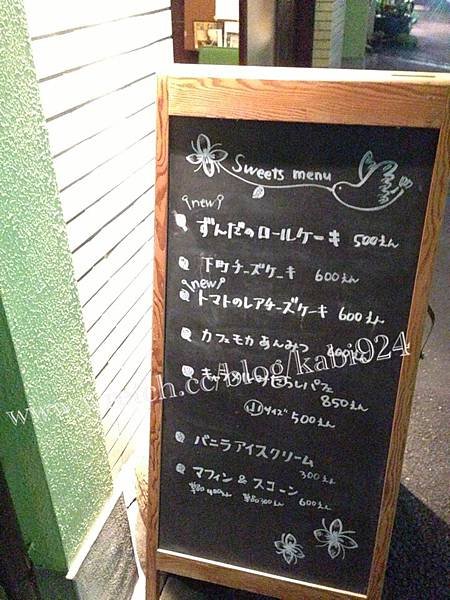 Sweets menu
new!
ずんだのロールケーキ 500えん
下町チーズケーキ 600えん
new!
トマトのレアチーズケーキ 600えん
カフェモカあんみつ
キャラメルみたらしパフェ
850えん
小サイズ 500えん
バニラアイスクリーム
300えん
マフィン & スコーン
600えん